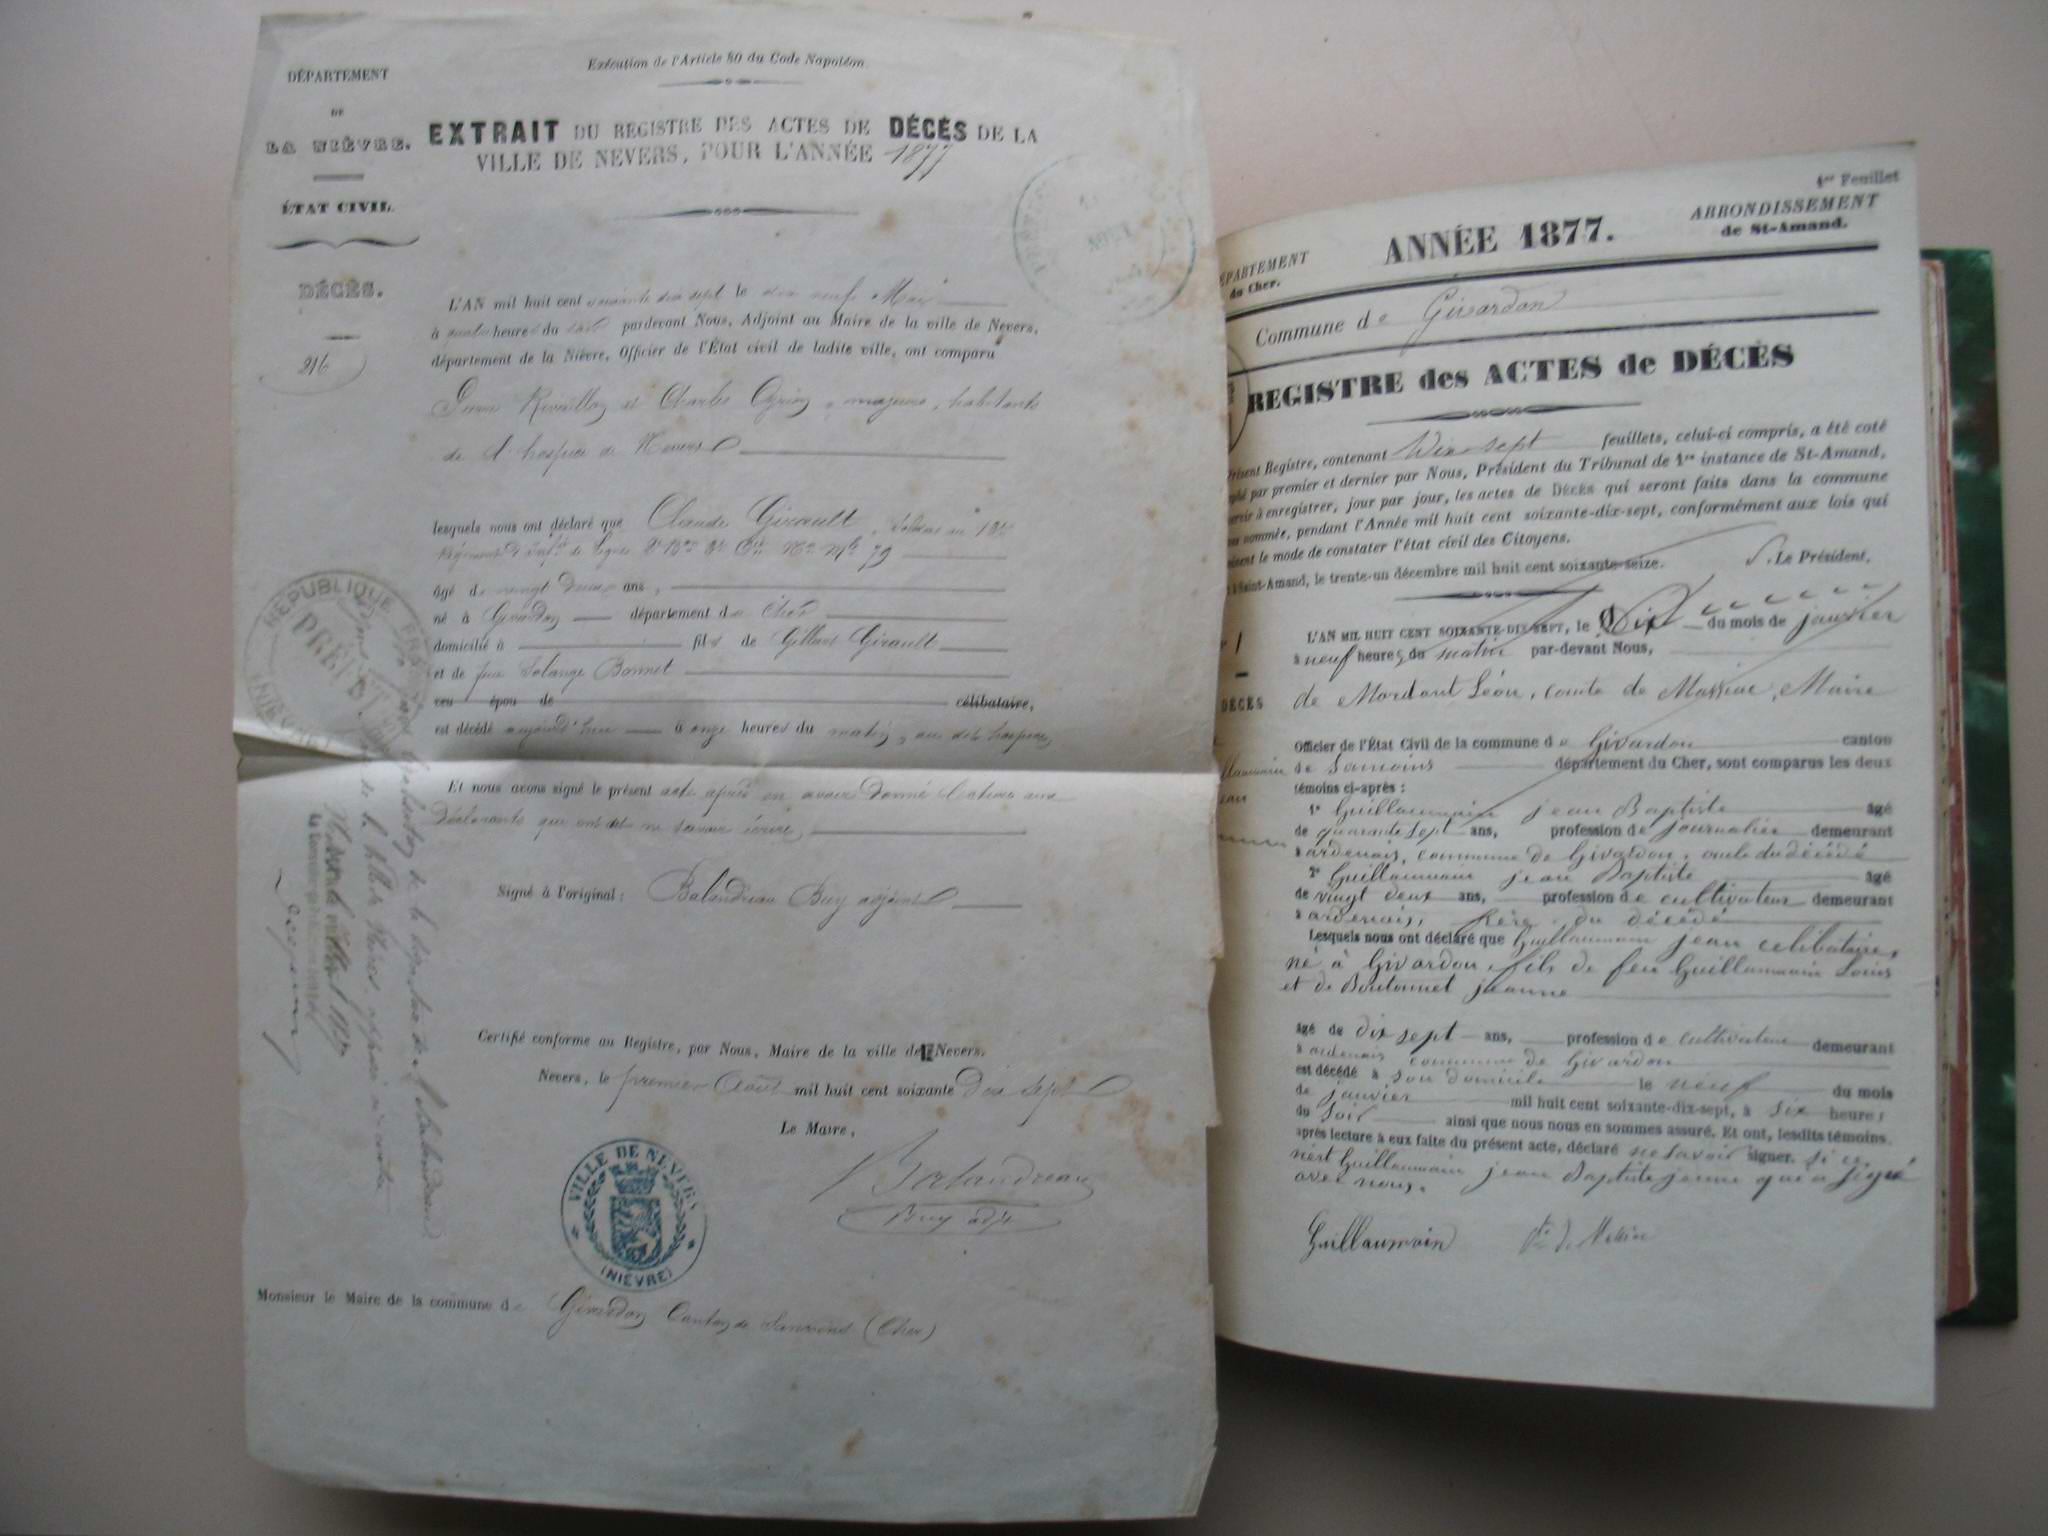 DÉPARTEMENT
DE
LA NIÈVRE.
ÉTAT CIVIL.
DÉCÈS.
216
Exécution de l'Article 80 du Code Napoléon
EXTRAIT DU REGISTRE DES ACTES DE DÉCÈS DE LA
VILLE DE NEVERS, POUR L'ANNÉE 1877
L'AN mil huit cent soixante dix sept le dix neuf Mai
à quatre heures du soir pardevant Nous, Adjoint au Maire de la ville de Nevers,
département de la Nièvre, Officier de l'État civil de ladite ville, ont comparu
Pierre et Charles majeurs, habitants
de l'hospice de Nevers
lesquels nous ont déclaré que Claude Girault, Soldat au
Régiment d'Infie de Ligne No Mle 79
âgé de vingt deux ans,
né à Givardon département du Cher
domicilié à fils de Gilbert Girault
et de feue Solange Bonnet
veu épou de célibataire,
est décédé aujourd'hui à onze heures du matin, au dit hospice
Et nous avons signé le présent acte après en avoir donné lecture aux
Déclarants qui ont dit ne savoir écrire,
Signé à l'original : Balandreau Buy adjoint
Certifié conforme au Registre, par Nous, Maire de la ville de Nevers.
Nevers, le premier Août mil huit cent soixante Dix sept
Le Maire,
Balandreau
Buy adjt
VILLE DE NEVERS
(NIÈVRE)
Monsieur le Maire de la commune de Givardon Canton de Sancoins (Cher)
RÉPUBLIQUE
PRÉFET
(NIÈVRE)
1er Feuillet
DÉPARTEMENT
du Cher.
ANNÉE 1877.
ARRONDISSEMENT
de St-Amand.
Commune de Givardon
REGISTRE des ACTES de DÉCÈS
Présent Registre, contenant Dix-sept feuillets, celui-ci compris, a été coté
par premier et dernier par Nous, Président du Tribunal de 1re instance de St-Amand,
servir à enregistrer, jour par jour, les actes de Décès qui seront faits dans la commune
nommée, pendant l'Année mil huit cent soixante-dix-sept, conformément aux lois qui
le mode de constater l'état civil des Citoyens.
à Saint-Amand, le trente-un décembre mil huit cent soixante-seize. Le Président,
1
DÉCÈS
L'AN MIL HUIT CENT SOIXANTE-DIX-SEPT, le Dix du mois de janvier
à neuf heures du matin par-devant Nous,
de Mordant Léon, comte de Massiac, Maire
Officier de l'État Civil de la commune de Givardon canton
de Sancoins département du Cher, sont comparus les deux
témoins ci-après :
1° Guillaumain jean Baptiste âgé
de quarante sept ans, profession de journalier demeurant
à ardenais, commune de Givardon, oncle du décédé
2° Guillaumain jean Baptiste âgé
de vingt deux ans, profession de cultivateur demeurant
à ardenais, frère du décédé
Lesquels nous ont déclaré que Guillaumain jean celibataire,
né à Givardon, fils de feu Guillaumain Louis
et de Boutonnet jeanne
âgé de dix sept ans, profession de cultivateur demeurant
à ardenais commune de Givardon
est décédé à son domicile le neuf du mois
de janvier mil huit cent soixante-dix-sept, à six heures
du soir ainsi que nous nous en sommes assuré. Et ont, lesdits témoins
après lecture à eux faite du présent acte, déclaré ne savoir signer. si ce
n'est Guillaumain jean Baptiste jeune qui a signé
avec nous.
Guillaumain